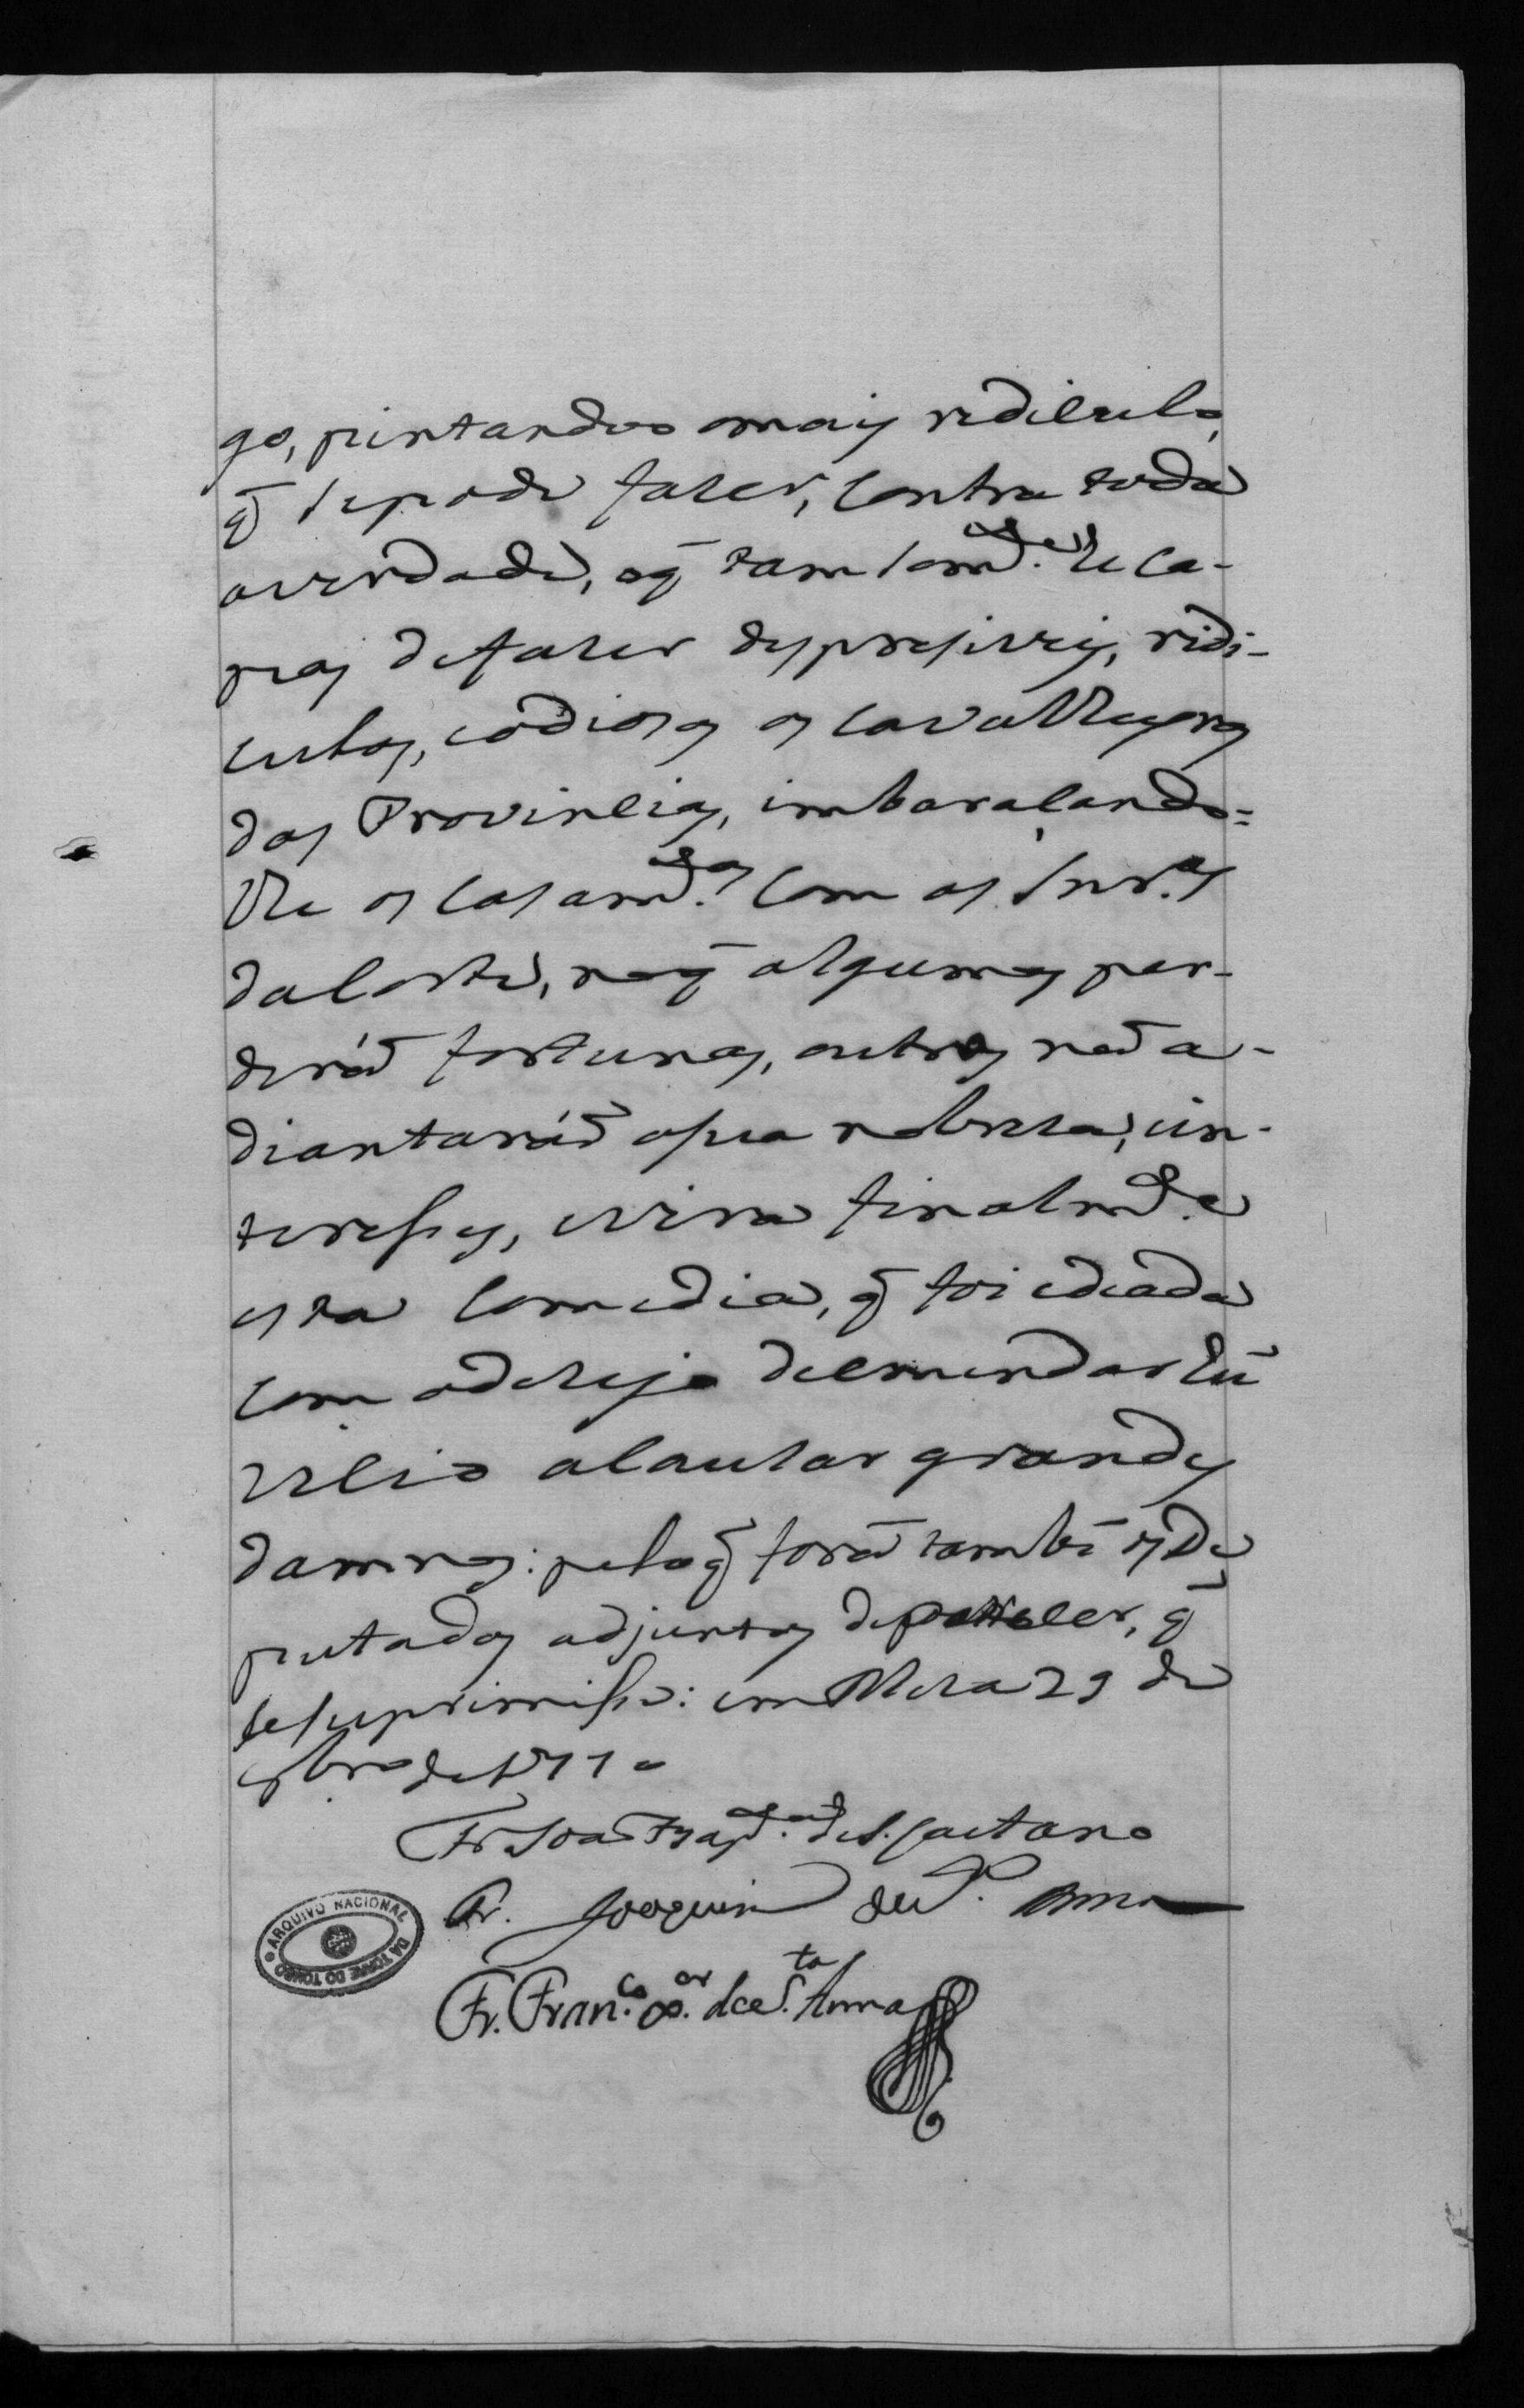 go, pintandoo omais redicculo,
q̃ sepode fazer, contra toda
averdade, oq̃ tam som.te he ca-
pas defazer despresiveis, ridi-
culos, eodiosos os cavalheyros
das Provincias, imbaraçando=
lhe os casam.tos com as Snr.as
daCorte, noq̃ algumas per-
deráõ fortunas, outros naõ a-
diantaráõ asua nobreza, ein-
teresses, evira finalm.te
esta Comedia, q̃ foi edeada
com odesejo deemendar hũ
vicio acauzar grandes
damnos: peloq̃ foraõ tambẽ os De
putados adjuntos deparecer, q̃
sesuprimisse: em Meza 29 de
8bro de 1771
Fr. Joaõ Bap.ta de S. Caetano
Fr. Joaquim de S.ta Anna
Fr. Fran.co X.er de S.ta Anna
ARQUIVO NACIONAL
DA TORRE DO TOMBO